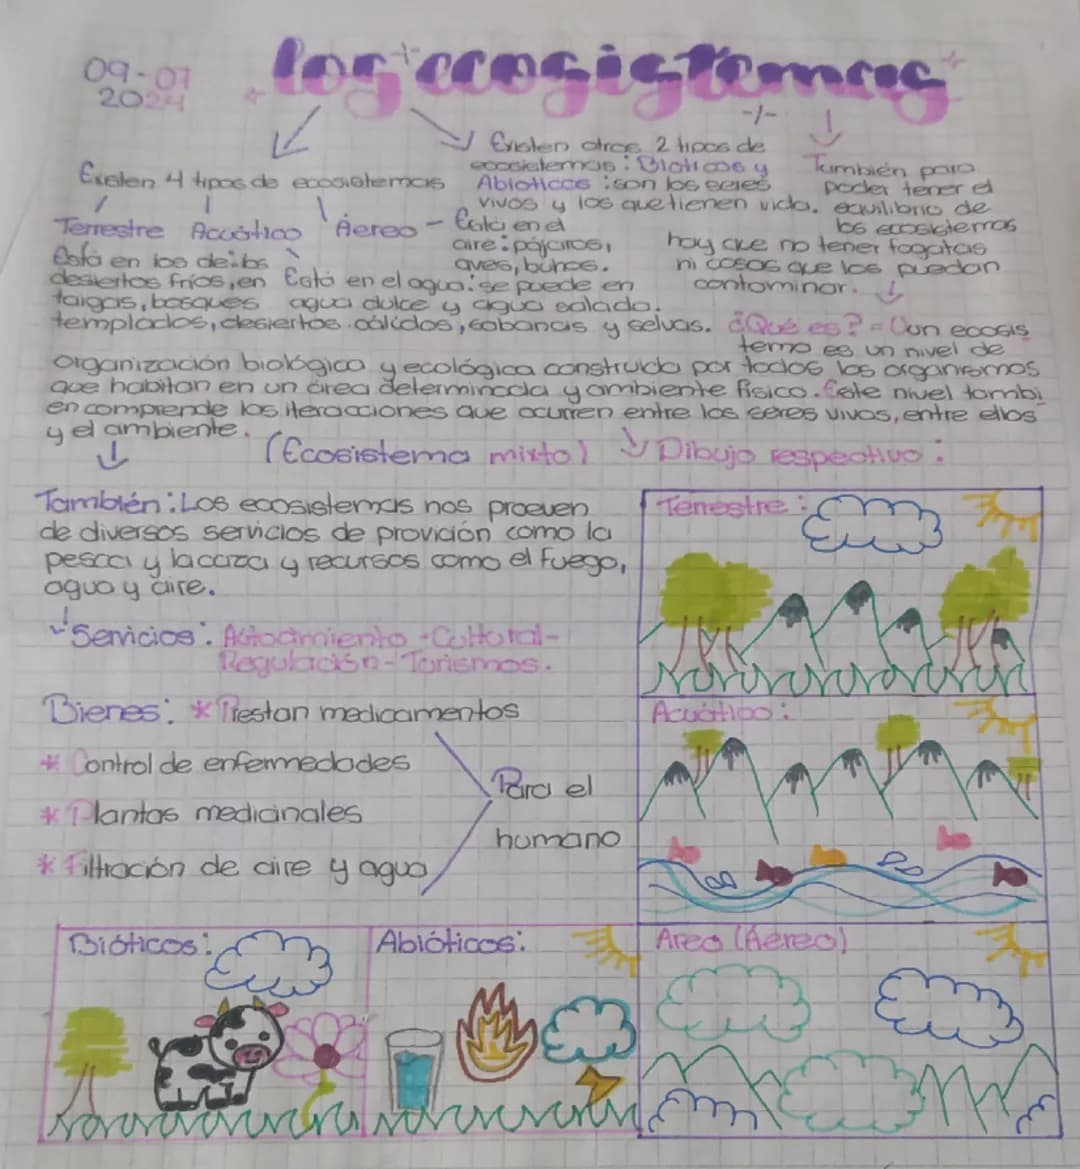 09-07
2024
los ecosistemas
Existen 4 tipos de ecosistemas
Existen otros 2 tipos de
ecosistemas: Bioticos y
Abioticos: son los seres
vivos y los que tienen vida.
También para
poder tener el
equilibrio de
los ecosistemas
hay que no tener fogatas
ni cosas que los puedan
contaminar.
Terrestre Acuático Áereo - Está en el
aire: pájaros,
aves, buhos.
Está en los de: los
desiertos fríos, en
taigas, bosques
templados, desiertos cálidos, sabanas y selvas.
Está en el agua: se puede en
agua dulce y agua salada.
¿Qué es? = Un ecosis
tema es un nivel de
organización biológica y ecológica construida por todos los organismos
que habitan en un área determinada y ambiente físico. Este nivel tambi
en comprende las iteracciones que ocurren entre los seres vivos, entre ellos
y el ambiente.
(Ecosistema mixto)
Dibujo respectivo:
También: Los ecosistemas nos proeven
de diversos servicios de provición como la
pesca y la caza y recursos como el fuego,
agua y aire.
Servicios: -Cultural-
Regulación-Turismos.
Bienes: * Prestan medicamentos
* Control de enfermedades
* Plantas medicinales
* Filtración de aire y agua
Para el
humano
Terrestre:
Acuático:
Bióticos:
Abióticos:
Areo (Áereo)